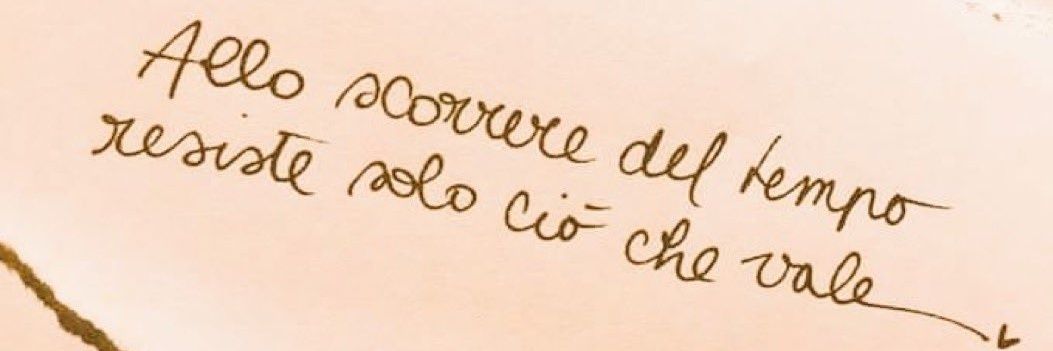 Allo scorrere del tempo
resiste solo ciò che vale